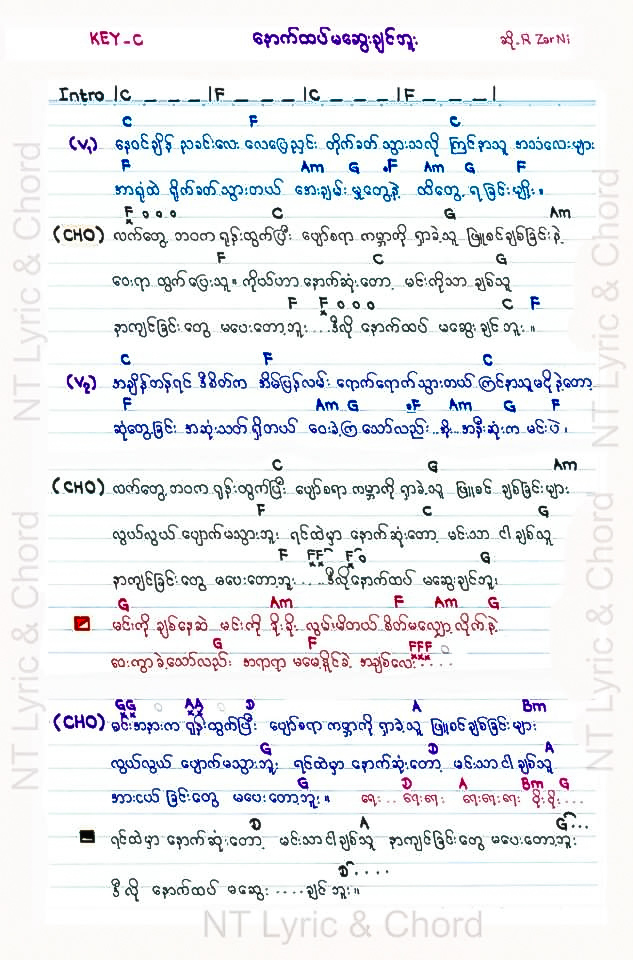 KEY-C နောက်ထပ်မဆွေးချင်ဘူး ဆို-R Zar Ni
Intro |C _ _ _ |F _ _ _ |C _ _ _ |F _ _ _ |
C F C
(V₁) နေဝင်ချိန် ညခင်းလေး လေပြေညှင်း တိုက်ခတ်သွားသလို ကြင်နာသူ အသံလေးများ
F Am G .F Am G F
အာရုံထဲ ရိုက်ခတ်သွားတယ် အေးချမ်းမှုတွေနဲ့ ထိတွေ့ရခြင်းမျိုး။
F o o o C G Am
(CHO) လက်တွေ့ဘဝက ရုန်းထွက်ပြီး ပျော်စရာ ကမ္ဘာကို ရှာခဲ့သူ ဖြူစင်ချစ်ခြင်းနဲ့
F C G
ဝေးရာ ထွက်ပြေးသူ။ ကိုယ်ဟာ နောက်ဆုံးတော့ မင်းကိုသာ ချစ်သူ
F F o o o C F
နာကျင်ခြင်းတွေ မပေးတော့ဘူး ...ဒီလို နောက်ထပ် မဆွေးချင်ဘူး။
C F C
(V₂) အချိန်တန်ရင် ဒီစိတ်က အိမ်ပြန်လမ်း ရောက်ရောက်သွားတယ် ကြင်နာသူမင်းနဲ့တော့
F Am G .F Am G F
ဆုံတွေ့ခြင်း အဆုံးသတ်ရှိတယ် ဝေးခဲ့ကြသော်လည်း ..အိုး...အနီးဆုံးက မင်းပဲ၊
C G Am
(CHO) လက်တွေ့ဘဝက ရုန်းထွက်ပြီး ပျော်စရာ ကမ္ဘာကို ရှာခဲ့သူ ဖြူစင် ချစ်ခြင်းများ
F C G
လွယ်လွယ် ပျောက်မသွားဘူး ရင်ထဲမှာ နောက်ဆုံးတော့ မင်းသာ ငါ ချစ်သူ
F FF F o G
နာကျင်ခြင်းတွေ မပေးတော့ဘူး ....ဒီလိုနောက်ထပ် မဆွေးချင်ဘူး
G Am F Am G
မင်းကို ချစ်နေဆဲ မင်းကို ခိုးခိုး လွမ်းမိတယ် စိတ်မလျှော့လိုက်နဲ့
G F FFF
ဝေးကွာခဲ့သော်လည်း အရာရာ မမေ့နိုင်ခဲ့ အချစ်လေး.....
GG AA D A Bm
(CHO) မင်းအနားက ရုန်းထွက်ပြီး ပျော်စရာ ကမ္ဘာကို ရှာခဲ့သူ ဖြူစင်ချစ်ခြင်းများ
G D A
လွယ်လွယ် ပျောက်မသွားဘူး ရင်ထဲမှာ နောက်ဆုံးတော့ မင်းသာငါ ချစ်သူ
G D A Bm G
အားငယ်ခြင်းတွေ မပေးတော့ဘူး။ ရေး.. ရေးရေး ရေးရေးရေး အိုးအိုး....
D A G...
ရင်ထဲမှာ နောက်ဆုံးတော့ မင်းသာငါချစ်သူ နာကျင်ခြင်းတွေ မပေးတော့ဘူး
D....
ဒီလို နောက်ထပ် မဆွေး ....ချင်ဘူး။
NT Lyric & Chord
NT Lyric & Chord
NT Lyric & Chord
NT Lyric & Chord
NT Lyric & Chord